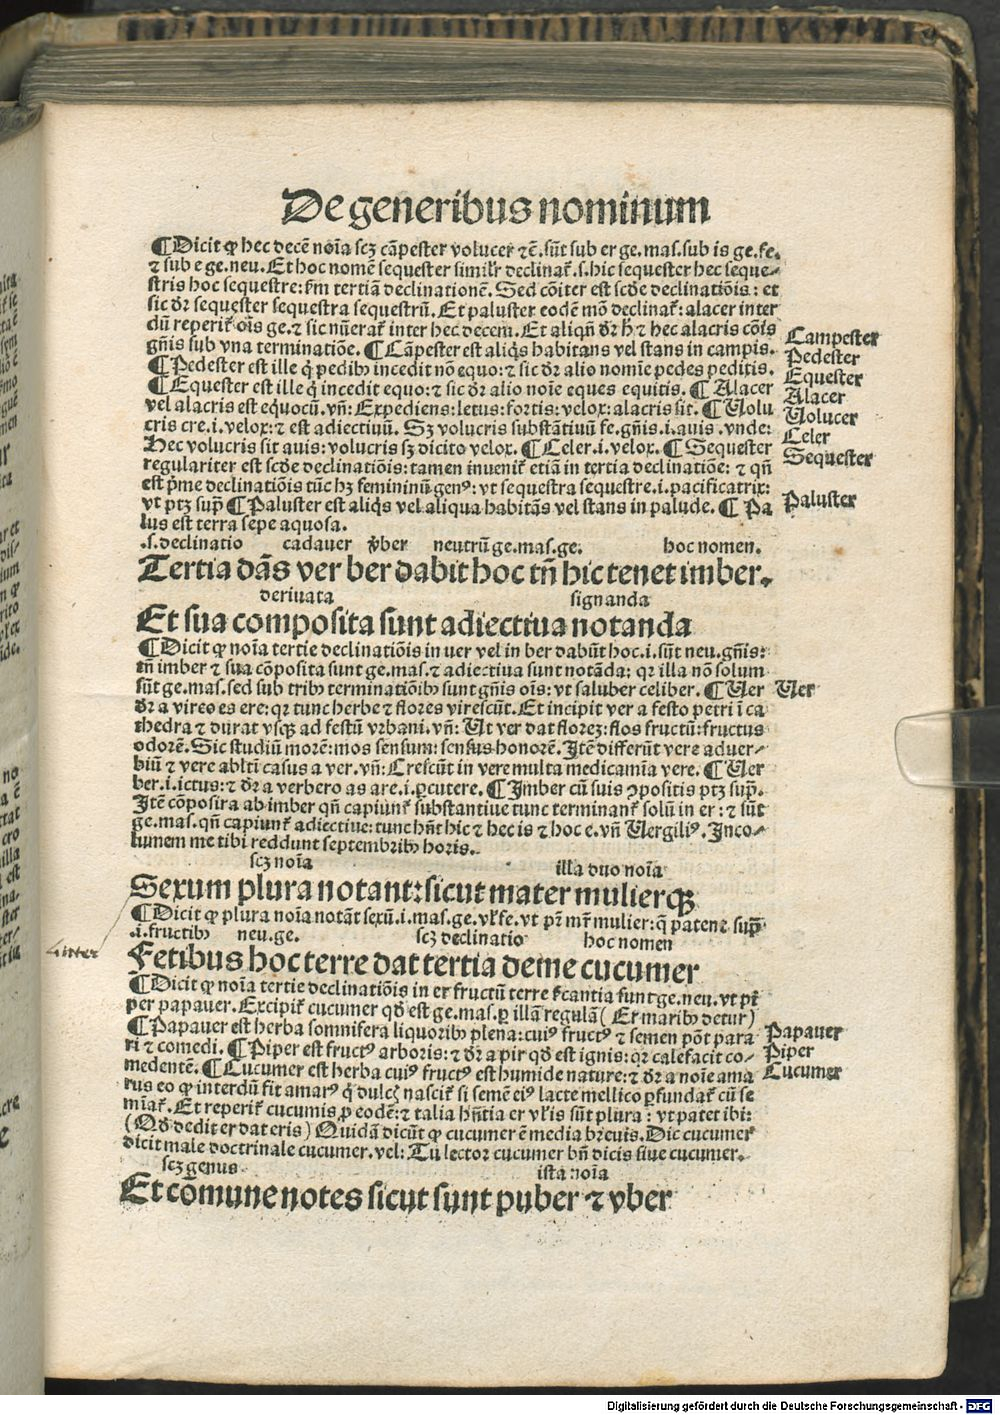 De generibus nominum
¶Dicit ꝙ hec decē noīa scꝫ cāpester volucer ⁊cͤ. sūt sub er ge. mas. sub is ge. fe.
⁊ sub e ge. neu. Et hoc nomē sequester simil'r declinat᷑. s. hic sequester hec seque-
stris hoc sequestre: fm tertiā declinationē. Sed cōiter est scd'e declinatiōis: et
sic dr̄ sequester sequestra sequestrū. Et paluster eodē mō declinat᷑: alacer inter
dū reperit᷑ oīs ge. ⁊ sic nūerat᷑ inter hec decem. Et aliqñ dr̄ hic ⁊ hec alacris cōis
gñis sub vna terminatiōe. ¶Cāpester est aliq̄s habitans vel stans in campis.
¶Pedester est ille q̄ pedibꝫ incedit nō equo: ⁊ sic dr̄ alio nomīe pedes peditis.
¶Equester est ille q̄ incedit equo: ⁊ sic dr̄ alio noīe eques equitis. ¶Alacer
vel alacris est equocū. vñ: Expediens: letus: fortis: velox: alacris sit. ¶Uolu
cris cre. i. velox: ⁊ est adiectiuū. Sꝫ volucris substātiuū fe. gñis. i. auis. vnde:
Hec volucris sit auis: volucris sꝫ dicito velox. ¶Celer. i. velox. ¶Sequester
regulariter est scd'e declinatiōis: tamen inuenit᷑ etiā in tertia declinatiōe: ⁊ qñ
est p̄me declinatiōis tūc hꝫ femininū genꝰ: vt sequestra sequestre. i. pacificatrix:
vt ptꝫ sup̄ ¶Paluster est aliq̄s vel aliqua habitās vel stans in palude. ¶Pa
lus est terra sepe aquosa.
Campester
Pedester
Equester
Alacer
Uolucer
Celer
Sequester
Paluster
.s. declinatio cadauer v̄ber neutrū ge. mas. ge. hoc nomen.
Tertia dās ver ber dabit hoc tñ hic tenet imber.
deriuata signanda
Et sua composita sunt adiectiua notanda
¶Dicit ꝙ noīa tertie declinatiōis in uer vel in ber dabūt hoc. i. sūt neu. gñis:
tñ imber ⁊ sua cōposita sunt ge. mas. ⁊ adiectiua sunt notāda: qr illa nō solum
sūt ge. mas. sed sub tribꝫ terminatiōibꝫ sunt gñis oīs: vt saluber celiber. ¶Uer
dr̄ a vireo es ere: qr tunc herbe ⁊ flores virescūt. Et incipit ver a festo petri ī ca
thedra ⁊ durat vsqꝫ ad festū vrbani. vñ: Ut ver dat florez: flos fructū: fructus
odorē. Sic studiū morē: mos sensum: sensus honorē. Itē differūt vere aduer-
biū ⁊ vere ablti casus a ver. vñ: Crescūt in vere multa medicamīa vere. ¶Uer
ber. i. ictus: ⁊ dr̄ a verbero as are. i. ꝑcutere. ¶Imber cū suis ꝯpositis ptꝫ sup̄.
Itē cōposita ab imber qñ capiunt᷑ substantiue tunc terminant᷑ solū in er: ⁊ sūt
ge. mas. qñ capiunt᷑ adiectiue: tunc hñt hic ⁊ hec is ⁊ hoc e. vñ Uergiliꝰ. Inco-
lumem me tibi reddunt septembribꝫ horis.
Uer
scꝫ noīa illa duo noīa
Sexum plura notant: sicut mater mulierqꝫ
¶Dicit ꝙ plura noīa notāt sexū. i. mas. ge. vl' fe. vt pr̄ mr̄ mulier: q̄ patent sup̄
.i. fructibꝫ neu. ge. scꝫ declinatio hoc nomen
Fetibus hoc terre dat tertia deme cucumer
¶Dicit ꝙ noīa tertie declinatiōis in er fructū terre s'cantia sunt ge. neu. vt pī
per papauer. Excipit᷑ cucumer qd' est ge. mas. ꝑ illā regulā (Er maribꝫ detur)
¶Papauer est herba somnifera liquoribꝫ plena: cuiꝰ fructꝰ ⁊ semen pōt para
ri ⁊ comedi. ¶Piper est fructꝰ arboris: ⁊ dr̄ a pir qd' est ignis: qr calefacit co-
medentē. ¶Cucumer est herba cuiꝰ fructꝰ est humide nature: ⁊ dr̄ a noīe ama
rus eo ꝙ interdū fit amarꝰ q̄ dulcꝫ nascit᷑ si semē eiꝰ lacte mellico ꝑfundat᷑ cū se
mīat᷑. Et reperit᷑ cucumis ꝓ eodē: ⁊ talia hñtia er vl' is sūt plura: vt patet ibi:
(Qd' dedit er dat eris) Quidā dicūt ꝙ cucumer ē media breuis. Dic cucumer
dicit male doctrinale cucumer. vel: Tu lector cucumer bñ dicis siue cucumer.
Papauer
Piper
Cucumer
scꝫ genus ista noīa
Et cōmune notes sicut sunt puber ⁊ vber
Digitalisierung gefördert durch die Deutsche Forschungsgemeinschaft - DFG